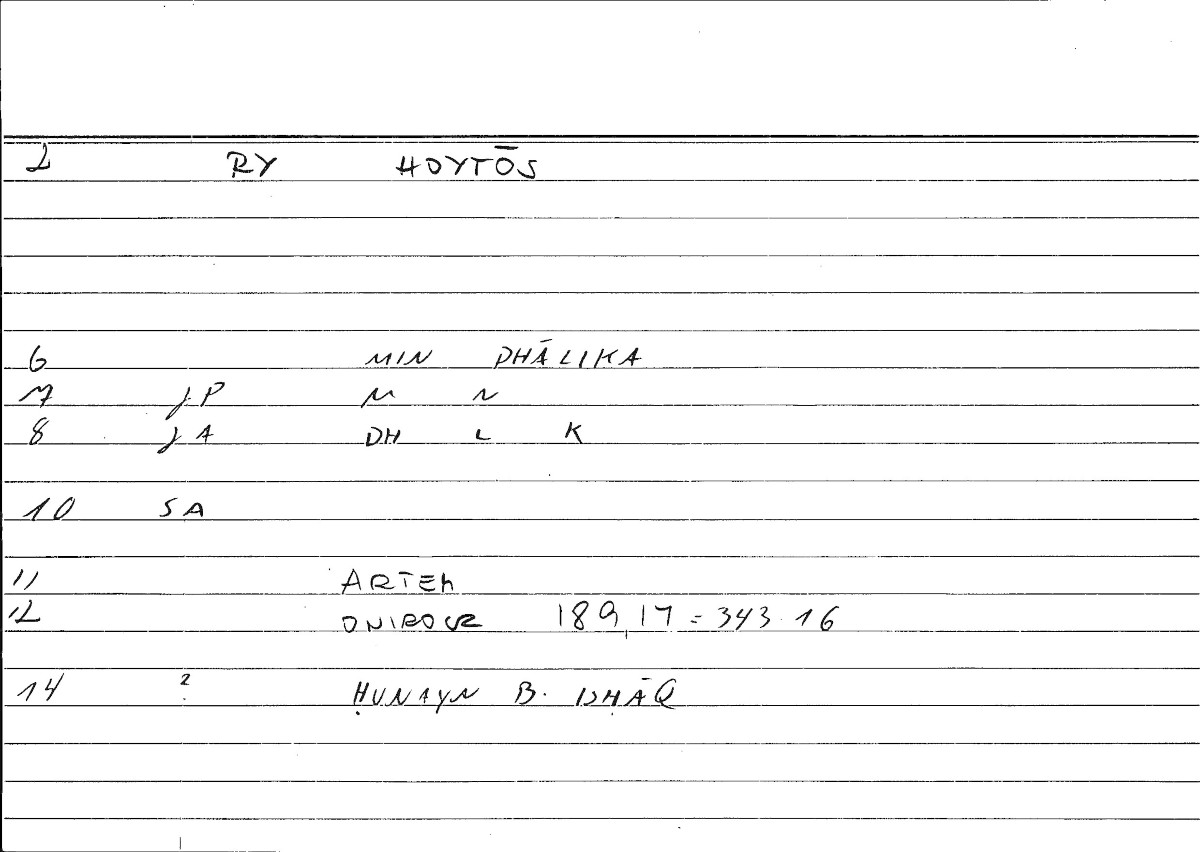 2 RY HOYTŌS
6 MIN DHĀLIKA
7 JP M N
8 JA DH L K
10 SA
11 ARTEM
12 ONIROCR 189,17 = 343.16
14 ? ḤUNAYN B. ISḤĀQ